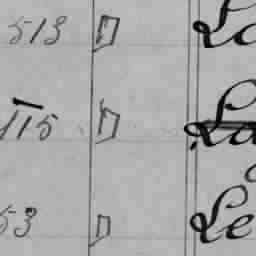 513 La
115 La
53 Le